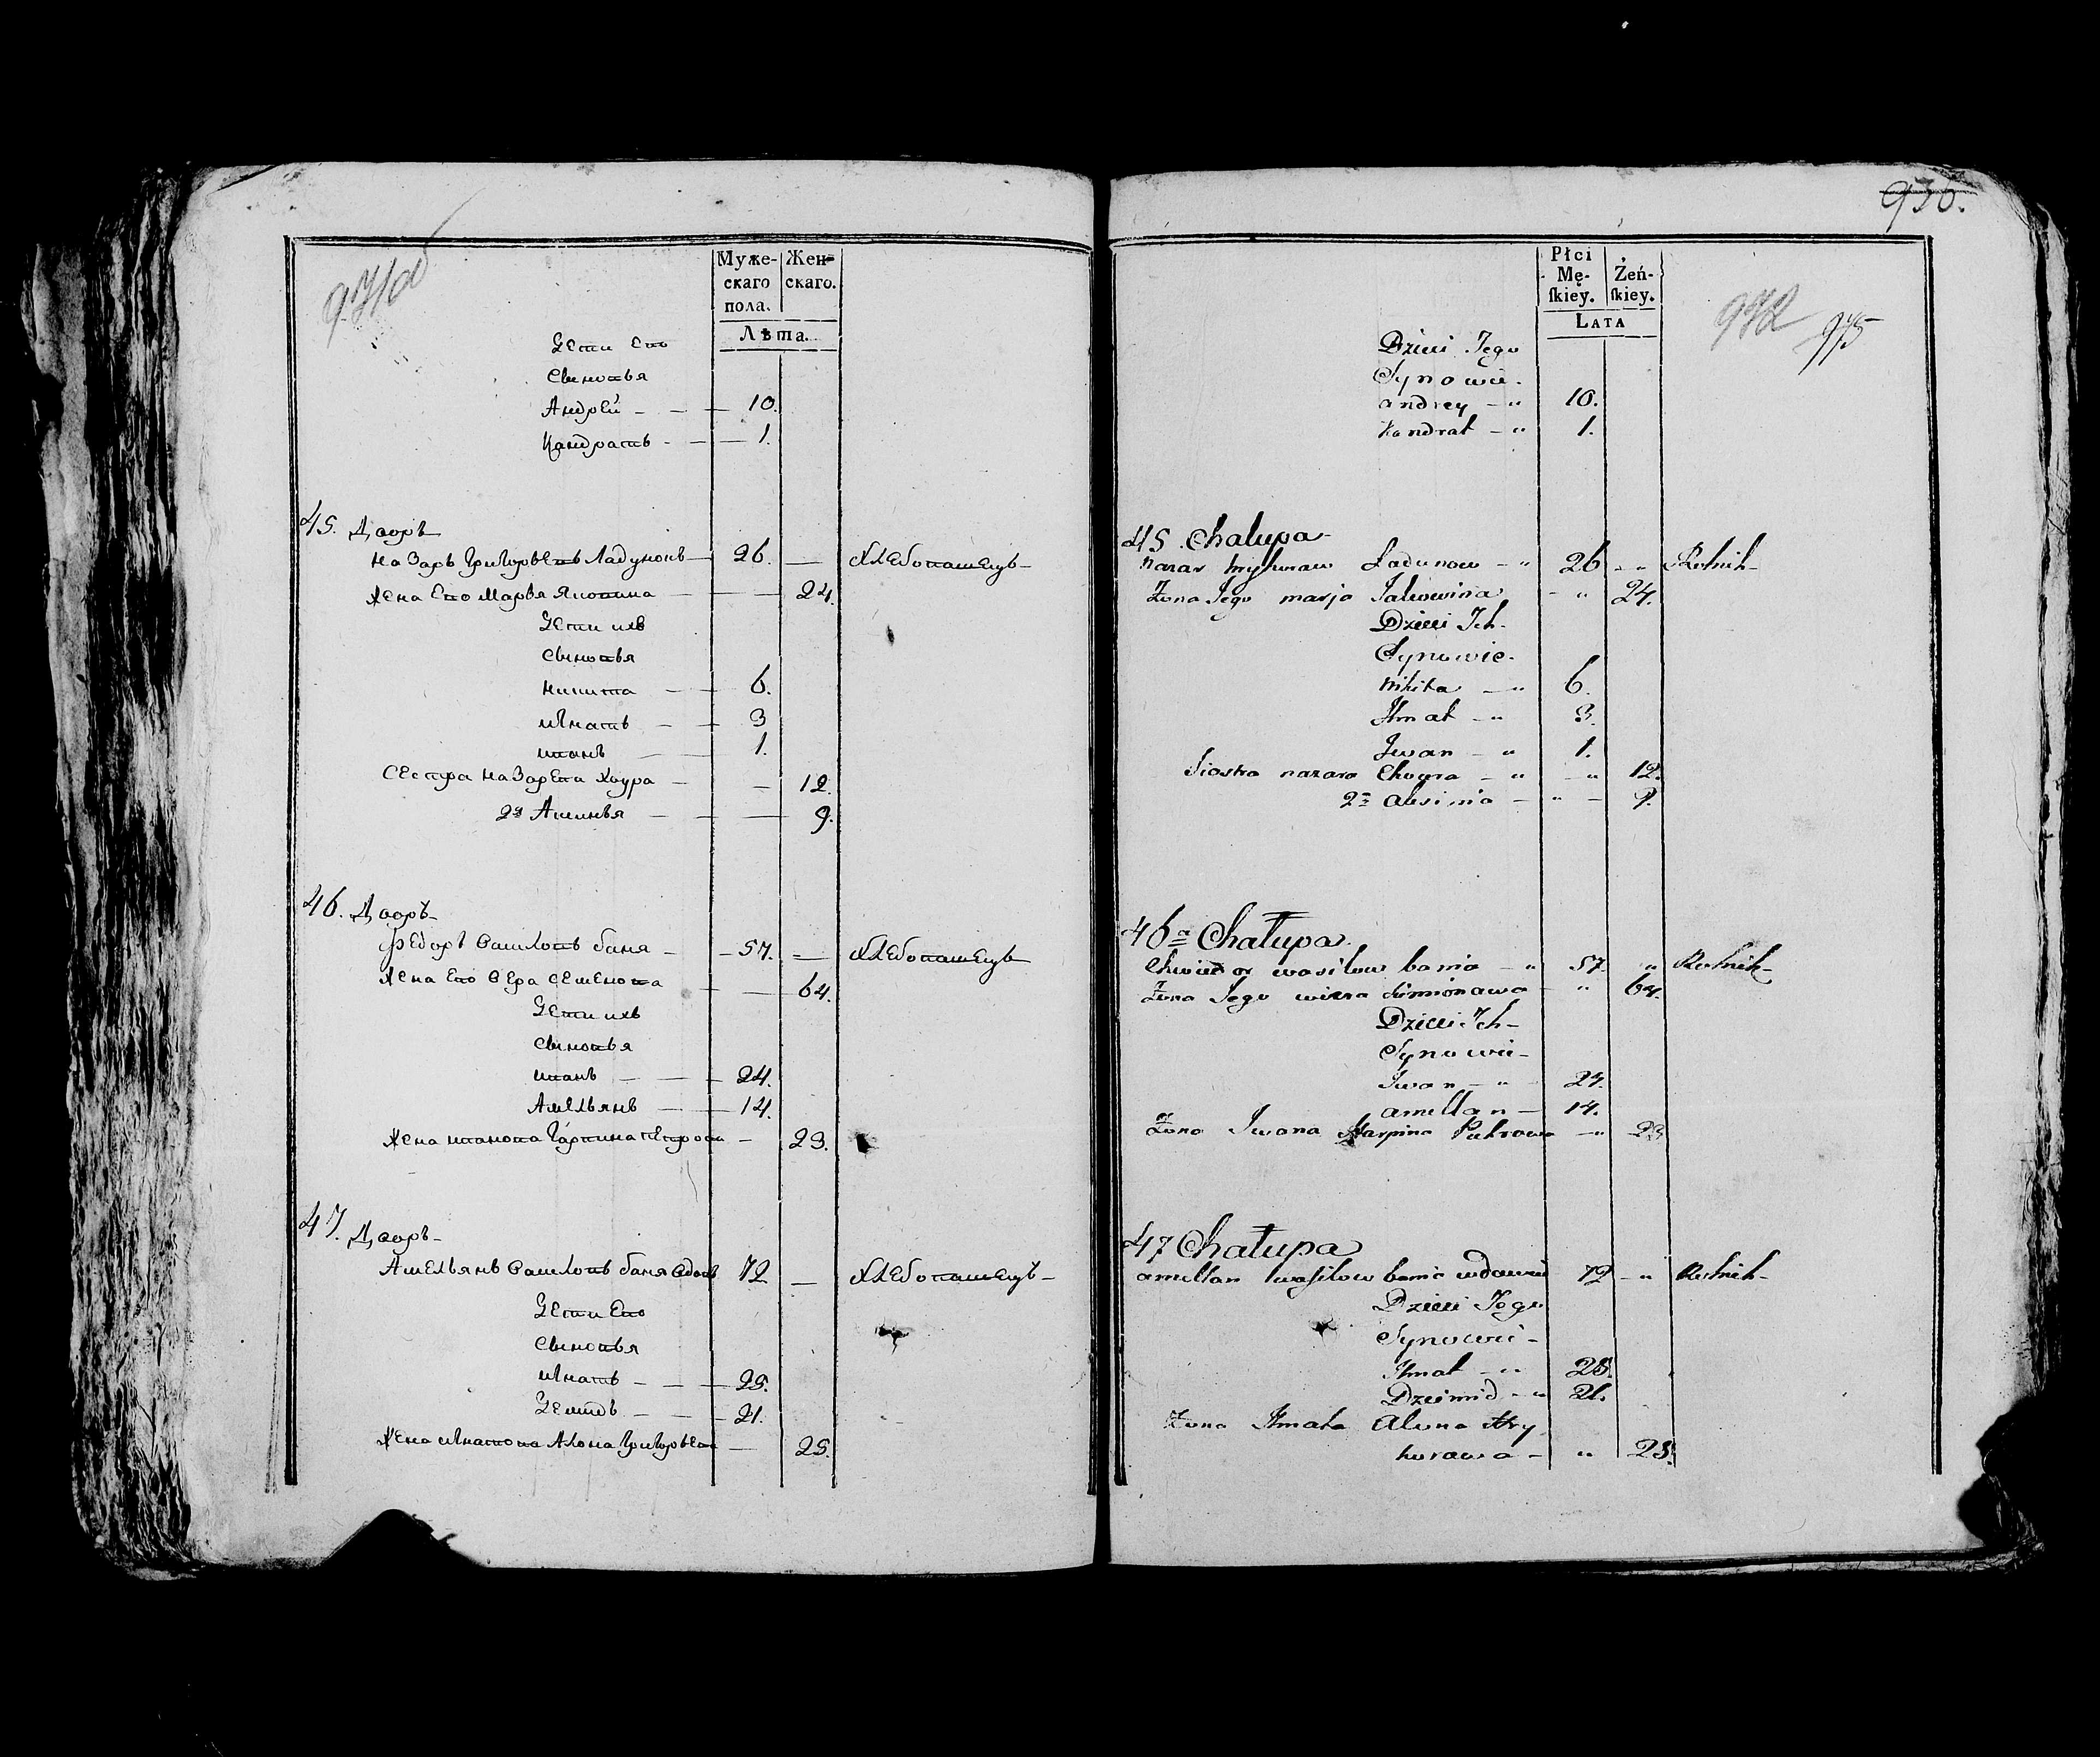 971об
Муже-
скаго
пола.
Жен-
скаго.
Лѣта.
Дети Ево
Сыновья
Андрей — — — 10.
Кандратъ — — — 1.
45. Дворъ
Назаръ Григорьевъ Ладуновъ — 26. — Хлебопашецъ —
Жена Ево Марья Яковова — — — 24.
Дети ихъ
Сыновья
Никита — — 6.
Игнатъ — — 3
Иванъ — — 1.
Сестра Назарева Хвура — — 12.
2я Аксинья — — — 9.
46. Дворъ
Федоръ Василовъ баня — 57. — Хлебопашецъ
Жена Ево Вера Семенова — — 64.
Дети ихъ
Сыновья
Иванъ — — — 24.
Амельянъ — — 14.
Жена Иванова Гарпина Петрова — 23.
47. Дворъ
Амельянъ Василовъ баня вдовъ 72 — Хлебопашецъ —
Дети Ево
Сыновья
Игнатъ — — — 25.
Демидъ — — — 21.
Жена Игнатова Алона Григорьева — 25.
936.
Płci
Mę-
ſkiey.
Żeń-
ſkiey.
LATA
972 975
Dzieci Jego
Synowie.
andrey — " 10.
Kondrat — " 1.
45 Chalupa
Nazar hryhuraw Ladunow — " 26 — " Rolnik —
Żona Jego marja Jakowina — " 24.
Dzieci Ich
Synowie.
Nikita — " 6.
Ihnat — " 3.
Iwan — " 1.
Siostra nazara Chwura — " — " 12.
2a Aksinia — " — 9.
46a Chałupa.
Chwiedor wasilow bania — " 57. " Rolnik —
Żona Jego wiera Simionawa " 64.
Dzieci Ich —
Synowie —
Iwan — " 24.
amellan — 14.
Żona Iwana Harpina Pietrowa — " 23
47 Chałupa
amellan wasilow bania wdowiec 72 — " Rolnik —
Dzieci Jego
Synowie —
Ihnat — " 25.
Dziemid — " 21.
Żona Ihnata Alona Hry
horawa — " 25.